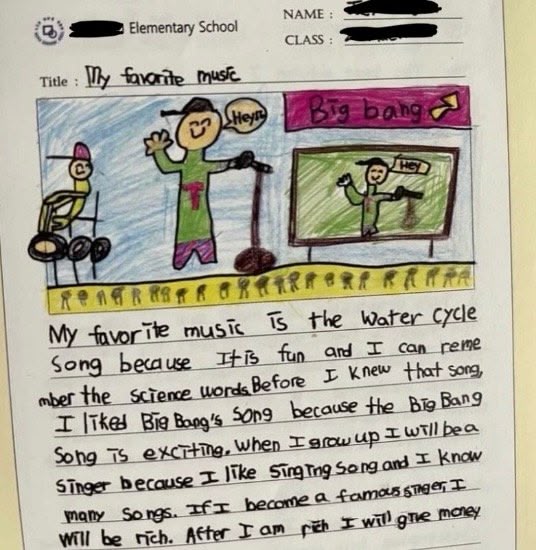 Elementary School
NAME :
CLASS :
Title : My favorite music
Heyy
Big bang
Hey
T
My favorite music is the water cycle
Song because It is fun and I can reme
mber the science words. Before I knew that song,
I liked Big Bang's Song because the Big Bang
Song is exciting. When I grow up I will be a
Singer because I like singing song and I know
many songs. If I become a famous singer, I
will be rich. After I am rich I will give money